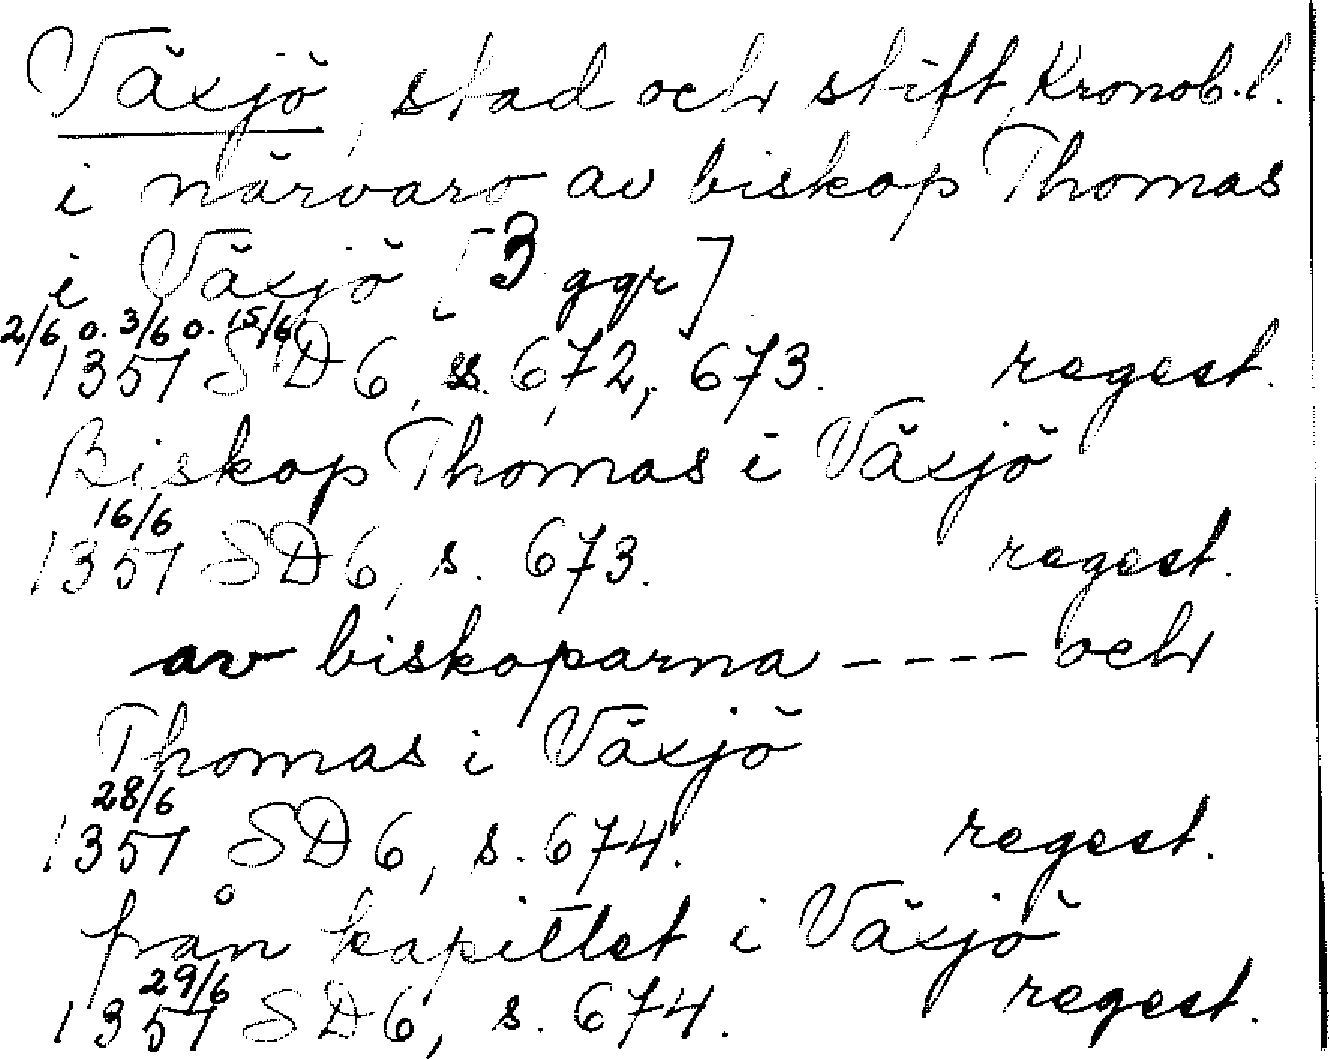 Växjö, stad och stift, Kronob.l.
i närvaro av biskop Thomas
i Växjö [3 ggr]
2/6 o. 3/6 o. 15/6
1357 SD 6, s. 672, 673. regest.
Biskop Thomas i Växjö
16/6
1357 SD 6, s. 673. regest.
av biskoparna ---- och
Thomas i Växjö
28/6
1357 SD 6, s. 674. regest.
från kapitlet i Växjö
29/6
1357 SD 6, s. 674. regest.